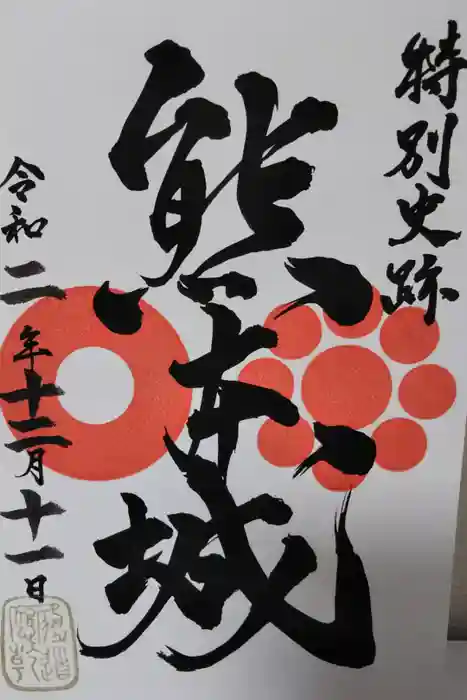 特別史跡
熊本城
令和二年十二月十一日